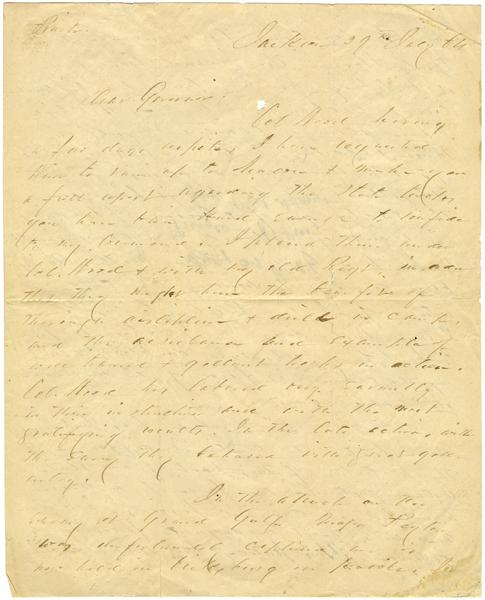 Private
Jackson 29th July 64
Dear Governor:
Col Wood having
a few days respite, I have requested
him to run up to Macon & make you
a full report regarding the State troops
you have been kind enough to confide
to my command. I placed them under
Col. Wood & with my old Regt, in order
that they might have the benefit of
thorough discipline & drill in camp,
and the assistance and example of
well trained & gallant troops in action.
Col. Wood has labored very earnestly
in their instruction and with the most
gratifying results. In the late actions with
the enemy they behaved with great gal-
lantry.
In the attack on the
enemy at Grand Gulf Major
was unfortunately captured and is
now held in Vicksburg in